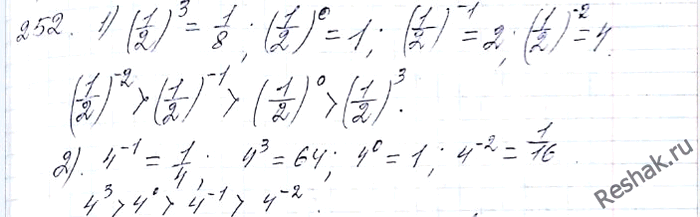 252. 1) (1/2)³ = 1/8; (1/2)⁰ = 1; (1/2)⁻¹ = 2; (1/2)⁻² = 4.
(1/2)⁻² > (1/2)⁻¹ > (1/2)⁰ > (1/2)³.
2). 4⁻¹ = 1/4; 4³ = 64; 4⁰ = 1; 4⁻² = 1/16.
4³ > 4⁰ > 4⁻¹ > 4⁻².
Reshak.ru